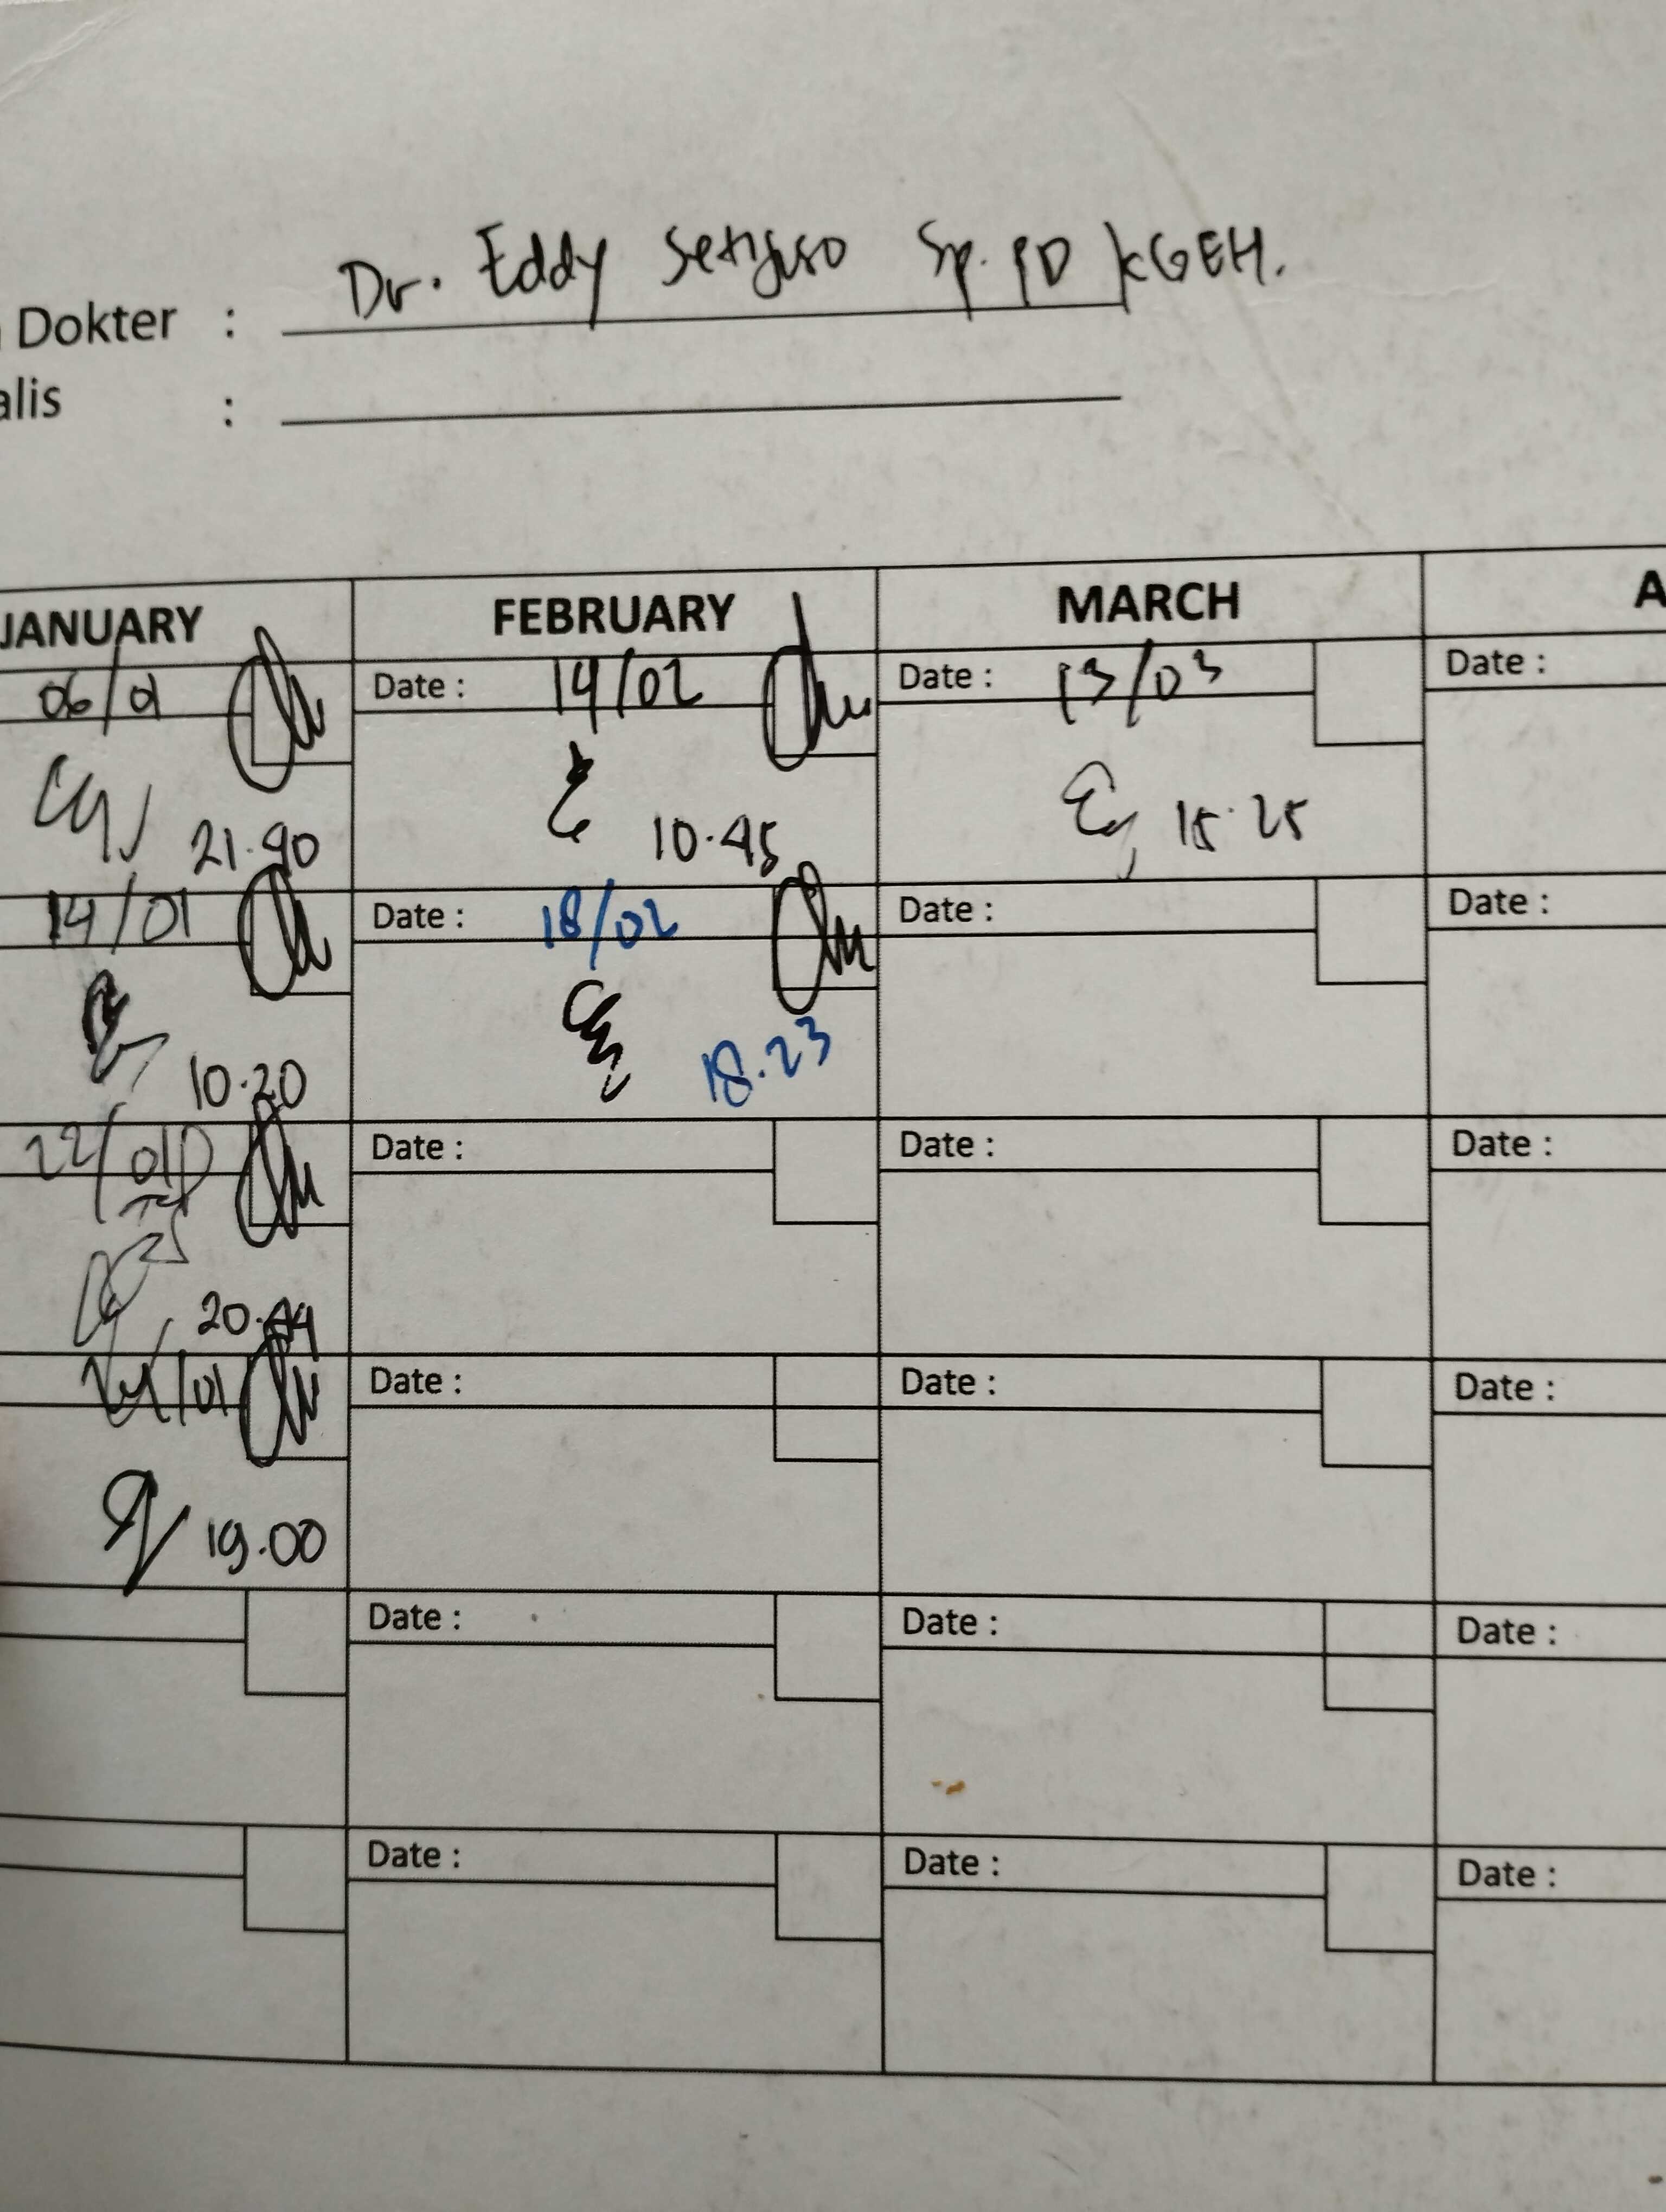 Dr. Eddy Setijoso Sp. PD KGEH.
Dokter :
alis :
JANUARY FEBRUARY MARCH A
06/01 Date : 14/02 Date : 13/03 Date :
21.40 10.45 15.25
14/01 Date : 18/02 Date : Date :
10.20 18.23
22/01 Date : Date : Date :
20.44
/01 Date : Date : Date :
19.00
Date : Date : Date :
Date : Date : Date :